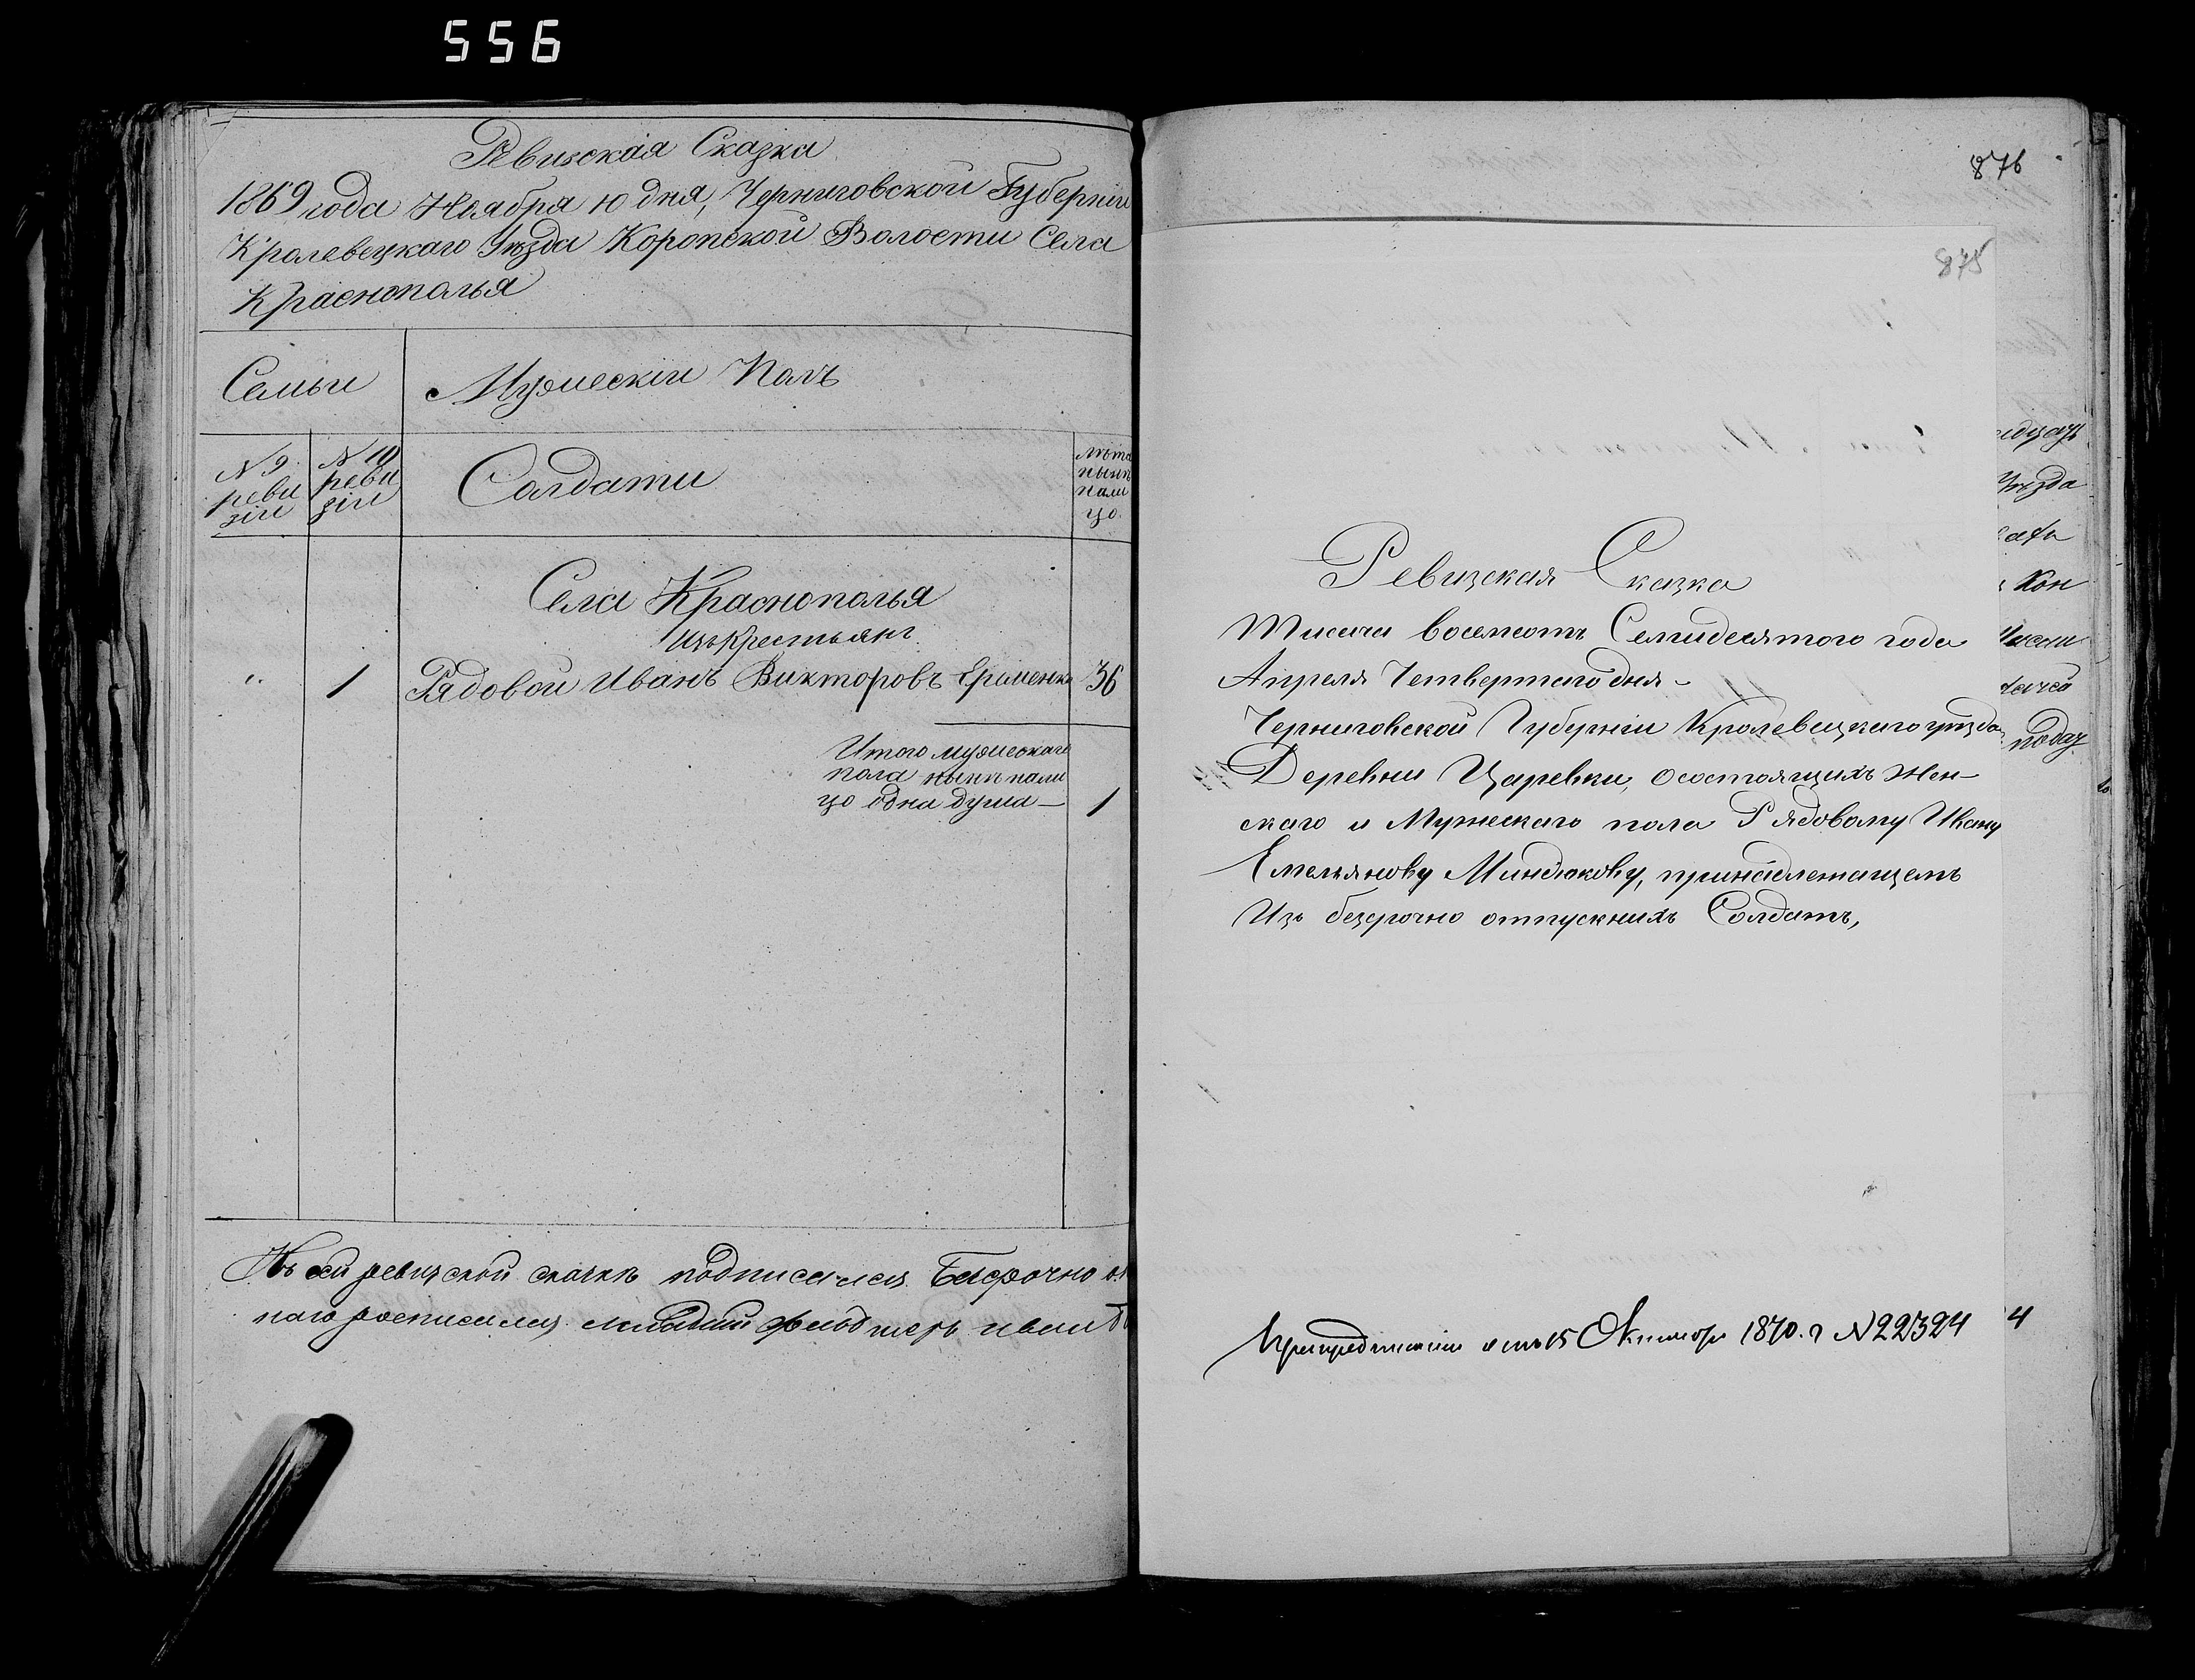 556
Ревизская Сказка
1869 года Ноября 10 дня, Черниговской Губерніи
Кролевецкаго Уѣзда Коропской Волости Села
Краснополья
Семьи
Мужескій Полъ
№ 9 ревизіи
№ 10 ревизіи
Солдати
Лѣта нынѣ на лицо.
Села Краснополья
изъ Крестьянъ
1 Рядовой Иванъ Викторовъ Ерименко 36
Итого мужескаго
пола нынѣ нали
цо одна душа — 1
Къ сей ревизской сказкѣ подписался Безсрочно
росписался младшій фельдшеръ
876
875
Ревизская Сказка
Тисяча восемсотъ Семидесятого года
Апреля Четвертаго дня —
Черниговской Губерніи Кролевецкаго уѣзда
Деревни Царевки, о состоящихъ жен-
скаго и Мужескаго пола Рядовому Ивану
Емельянову Миндюкову, принадлежащемъ
Изъ безсрочно отпускнихъ Солдатъ,
уѣзда
Кон
подаз
При предписаніи отъ 15 Октября 1870. г №22324
4